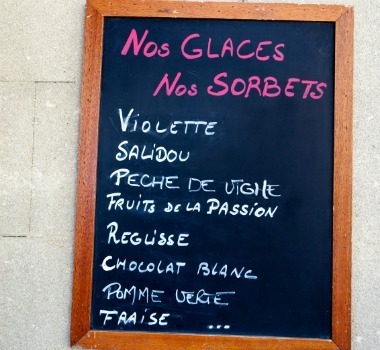 Nos GLACES
Nos SORBETS
VIOLETTE
SALIDOU
PECHE DE VIGNE
FRUITS DE LA PASSION
REGLISSE
CHOCOLAT BLANC
POMME VERTE
FRAISE ...